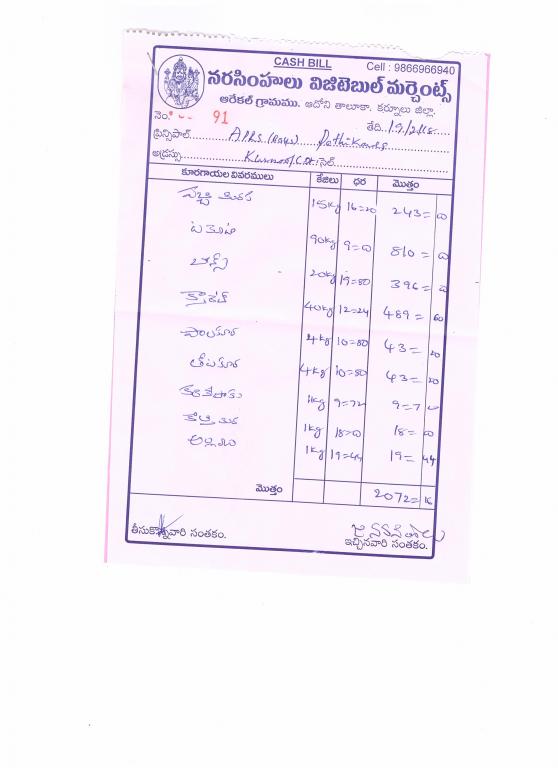 CASH BILL Cell : 9866966940
నరసింహులు విజిటెబుల్ మర్చెంట్స్
ఆరేకల్ గ్రామము. ఆదోని తాలూకా. కర్నూలు జిల్లా.
నెం. 91
తేది.
ప్రిన్సిపాల్ APRS (Boys)
అడ్రస్సు సెల్
కూరగాయల వివరములు కేజీలు ధర మొత్తం
పచ్చి మిరప 15kg 16=20 243= 0
టమోటా 90kg 9=0 810= 0
బీన్స్ 20kg 19=80 396= 0
క్యారెట్ 40kg 12=24 489= 60
పాలకూర 4kg 10=80 43= 20
4kg 10=80 43= 20
కరివేపాకు 1kg 9=72 9=7
కొత్తిమిర 1kg 18=0 18= 0
అల్లము 1kg 19=44 19= 44
మొత్తం 2072= 16
తీసుకొన్నవారి సంతకం. ఇచ్చినవారి సంతకం.